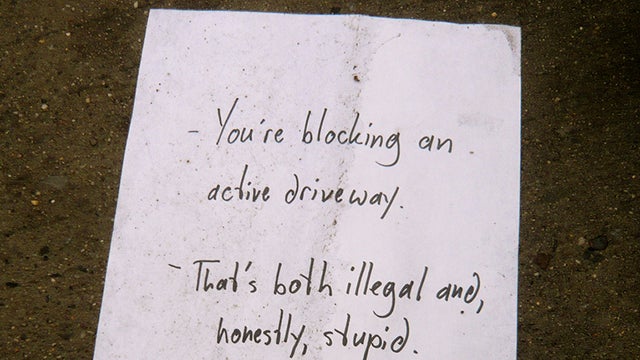 - You're blocking an
active driveway.
- That's both illegal and,
honestly, stupid.